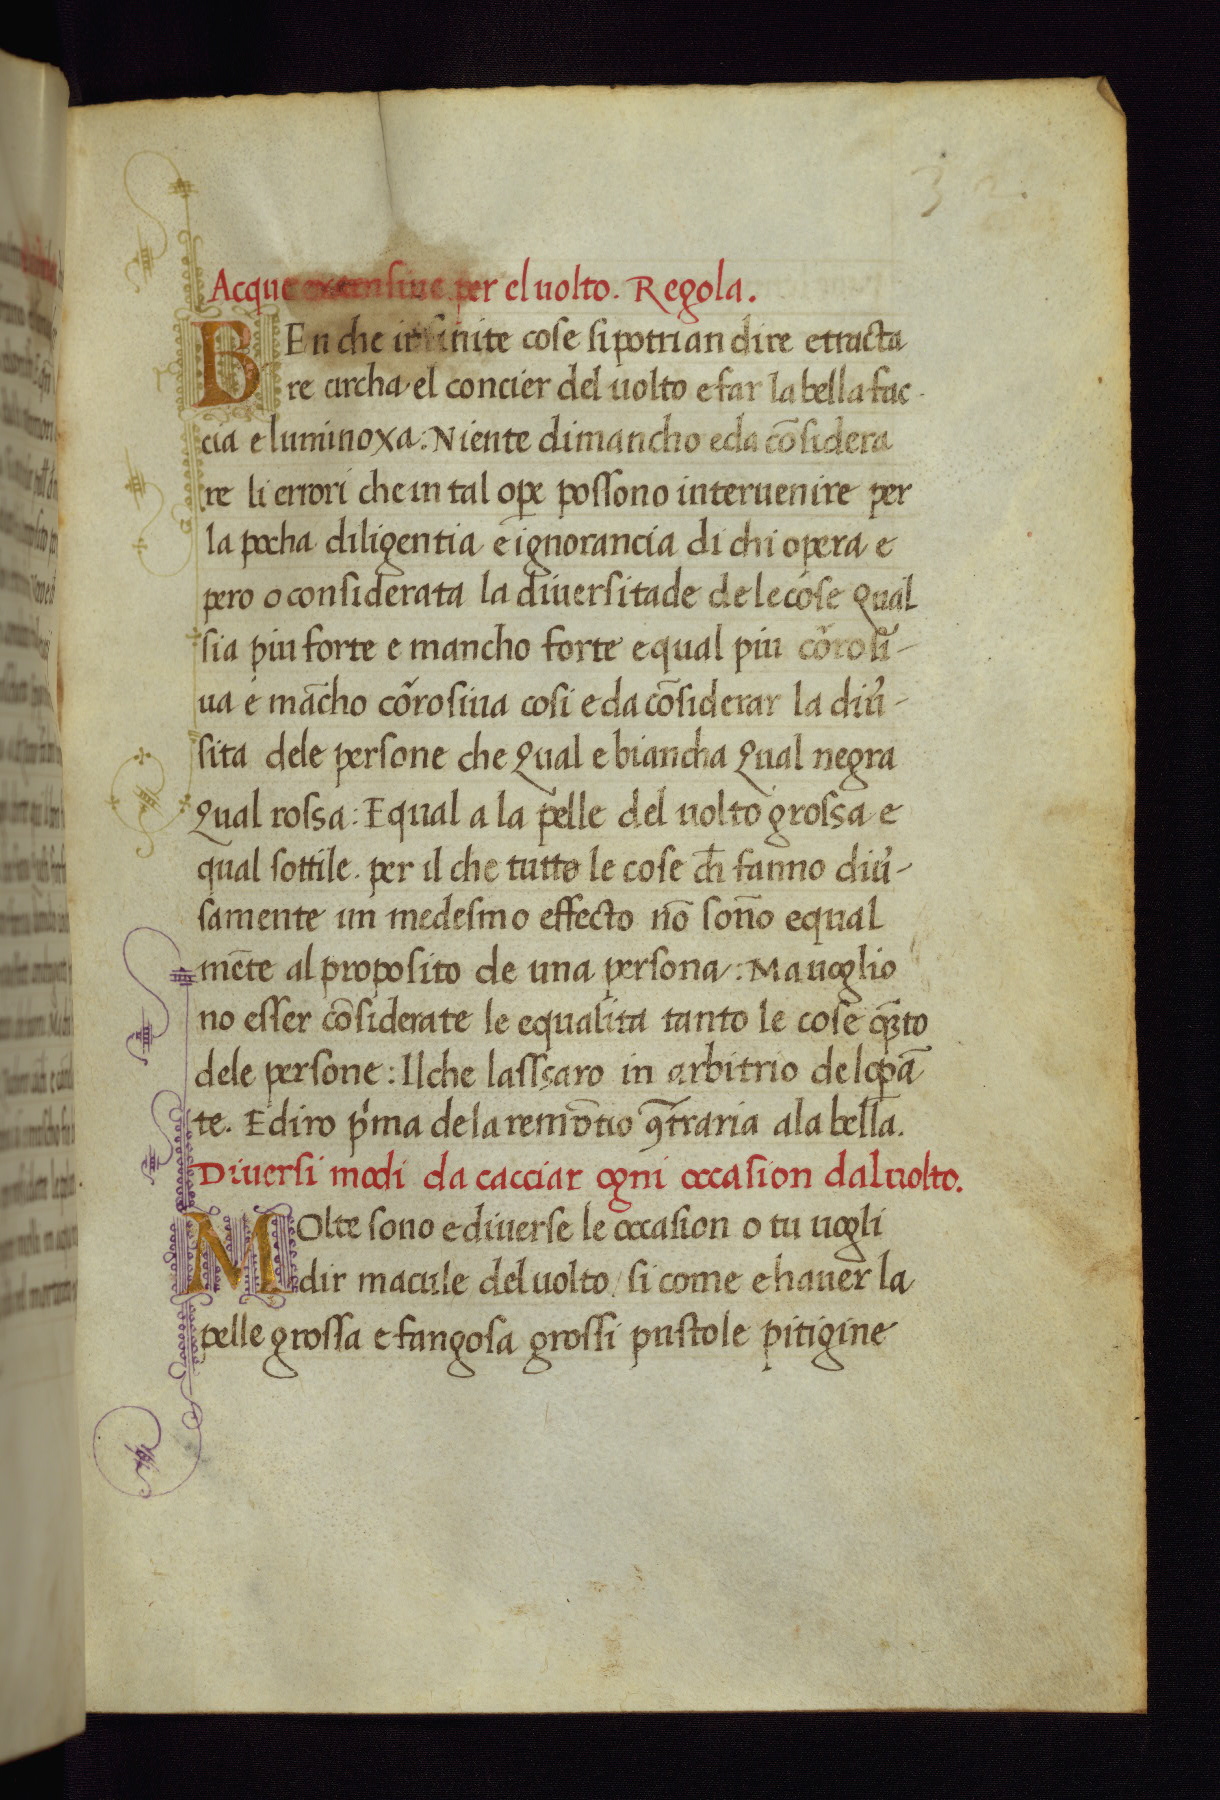 32.
Acque extensiue per el uolto. Regola.
BEn che infinite cose si potrian dire e tracta
re circha el concier del uolto e far la bella fac
cia e luminoxa: Niente dimancho e da cõsidera
re li errori che in tal ope possono interuenire per
la pocha diligentia e ignorancia di chi opera e
pero o considerata la diuersitade de le cose Qual
sia piu forte e mancho forte e qual piu cõrosi-
ua e mãcho cõrosiua cosi e da cõsiderar la diũ-
sita dele persone che Qual e biancha Qual negra
Qual rossa: E qual a la pelle del uolto grossa e
qual sottile. per il che tutto le cose ch̃ fanno diũ-
samente un medesmo effecto nõ soño equal
mẽte al proposito de una persona: Ma uoglio
no esser cõsiderate le equalita tanto le cose q̃to
dele persone: Il che lasssaro in arbitrio del opã
te. E diro p'ma de la remõtio 9̃traria a la bella.
Diuersi modi da cacciar ogni occasion dal uolto.
MOlte sono e diuerse le occasion o tu uogli
dir macule del uolto / si come e hauer la
pelle grossa e fangosa grossi pustole pitigine